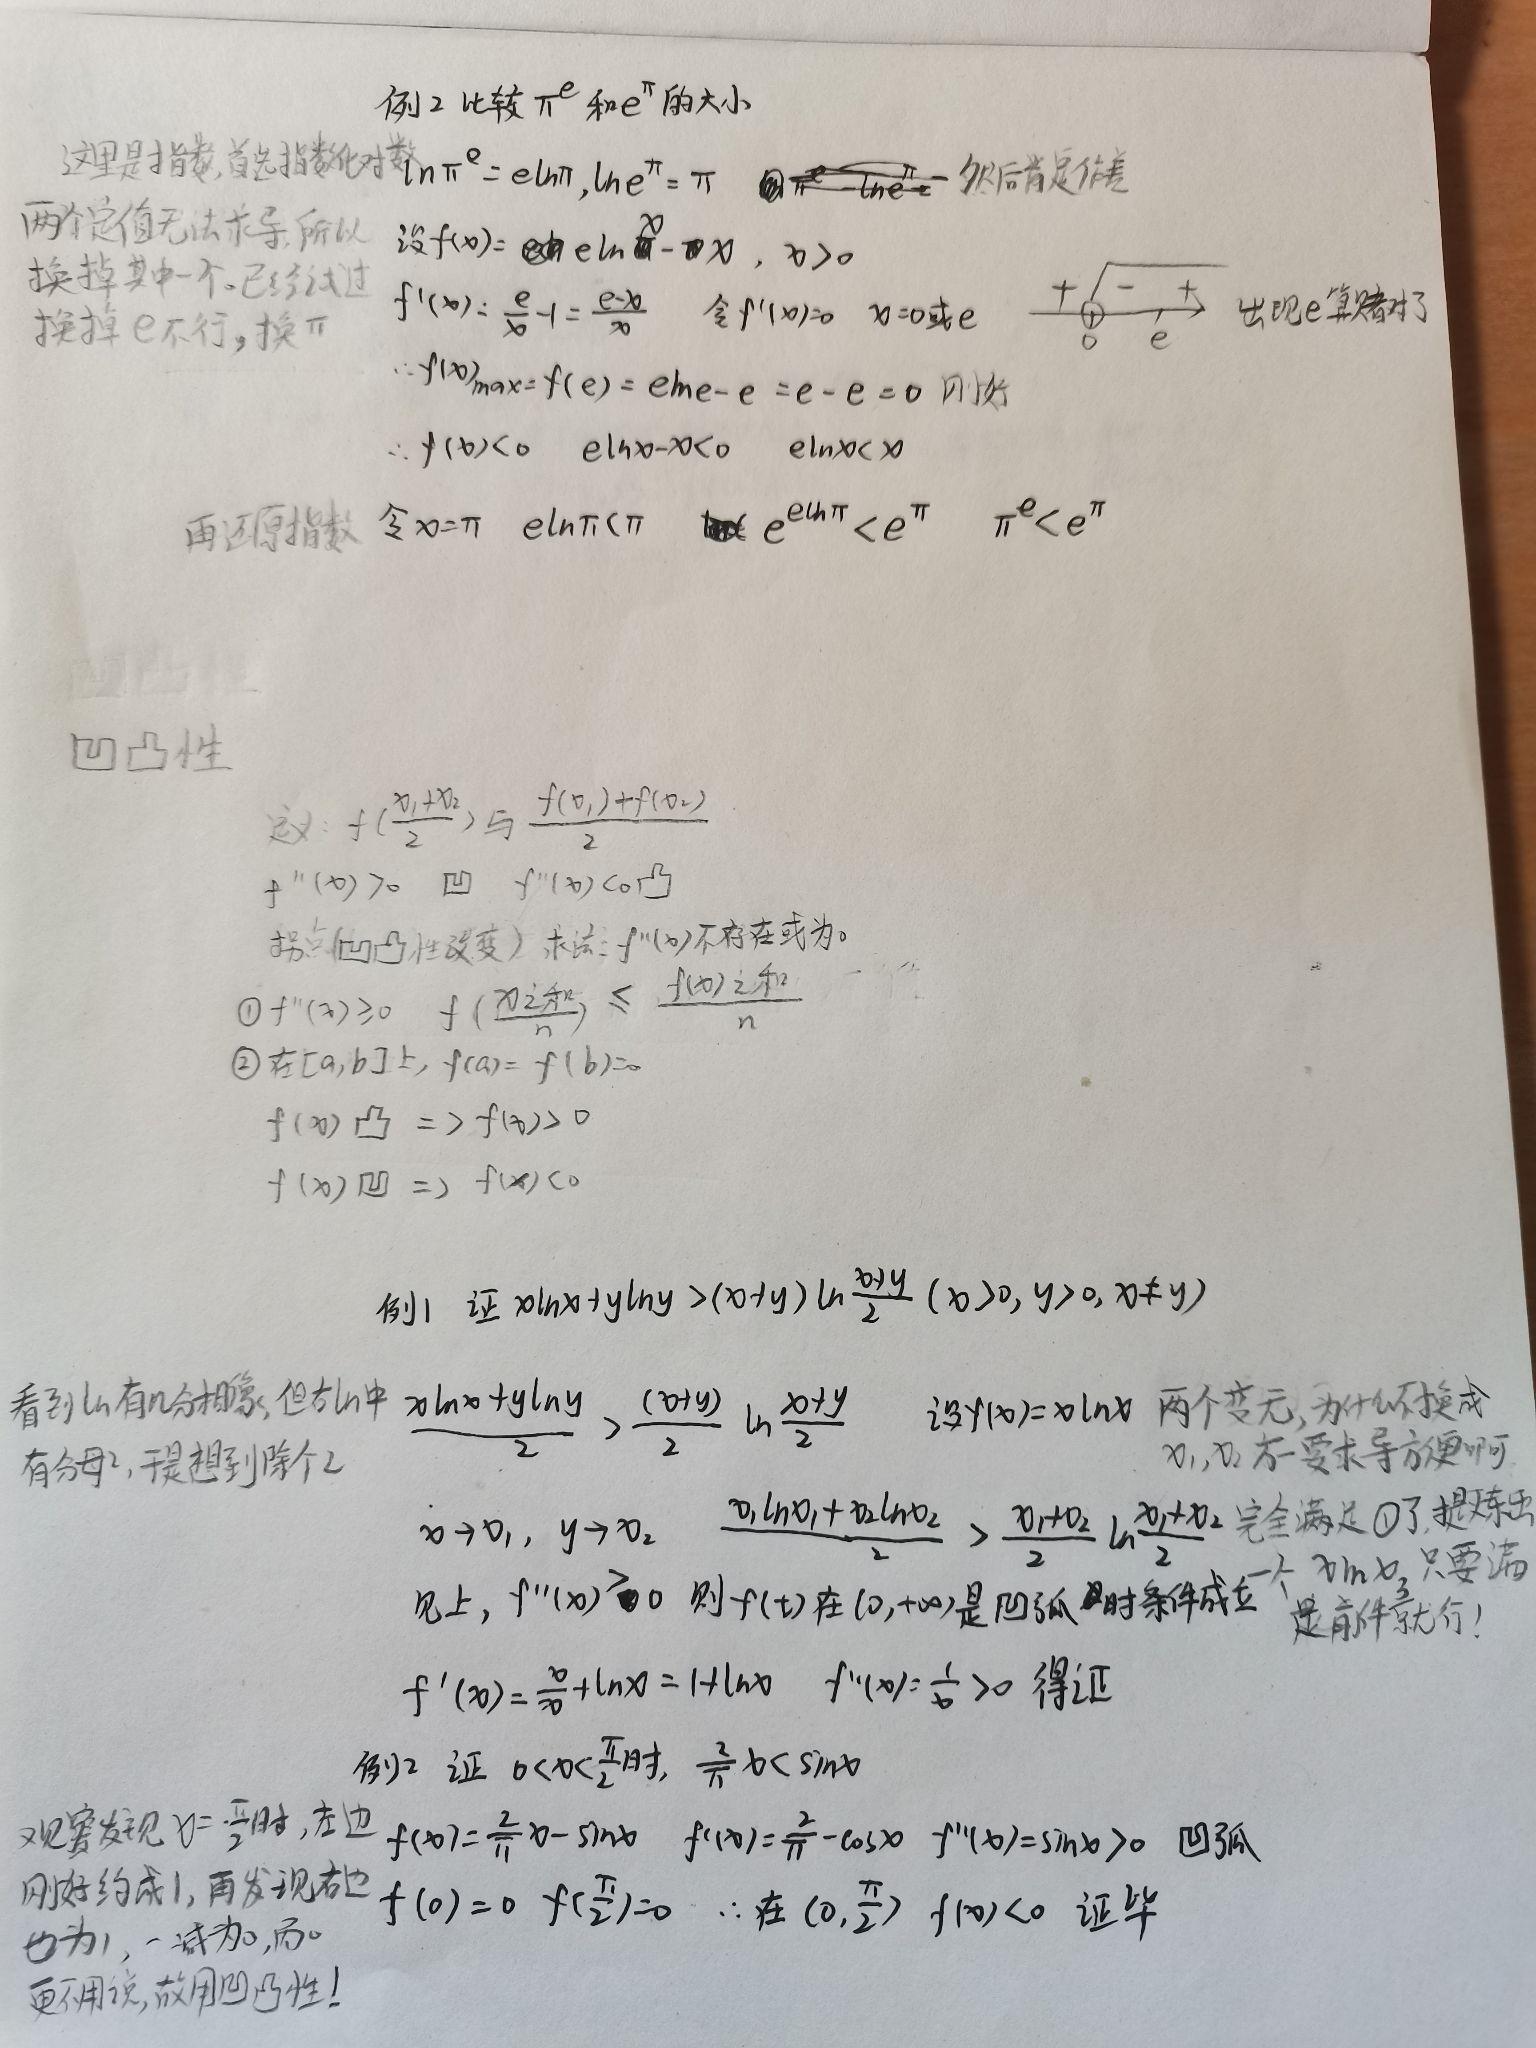 例2 比较 π^e 和 e^π 的大小
这里是指数,首先指数化对数
lnπ^e = elnπ, lne^π = π 然后肯定作差
两个定值无法求导,所以
换掉其中一个。已经试过
换掉e不行,换π
设f(x)= eln x - x , x>0
f'(x)= e/x -1 = (e-x)/x 令f'(x)=0 x=0或e + - + 0 e 出现e算赌对了
∴f(x)max=f(e)=elne-e=e-e=0 刚好
∴f(x)<0 elnx-x<0 elnx<x
再还原指数 令x=π elnπ<π e^(elnπ)<e^π π^e<e^π
凹凸性
凹凸性
定义: f((x₁+x₂)/2) 与 (f(x₁)+f(x₂))/2
f''(x)>0 凹 f''(x)<0凸
拐点(凹凸性改变) 求法: f''(x)不存在或为0
① f''(x)≥0 f(x之和/n) ≤ f(x)之和/n
②在[a,b]上, f(a)= f(b)=0
f(x)凸 => f(x)>0
f(x)凹 => f(x)<0
例1 证 xlnx+ylny>(x+y)ln (x+y)/2 (x>0, y>0, x≠y)
看到ln有几分相像,但右ln中
有分母2,于是想到除个2
(xlnx+ylny)/2 > (x+y)/2 ln (x+y)/2 设f(x)=xlnx 两个变元,为什么不换成
x₁,x₂ 万一要求导方便啊
x→x₁, y→x₂ (x₁lnx₁+x₂lnx₂)/2 > (x₁+x₂)/2 ln (x₁+x₂)/2 完全满足①了,提炼出
一个xlnx,只要满
足前件就行!
见上, f''(x)>0 则f(t)在(0,+∞)是凹弧 时条件成立
f'(x)= x/x +lnx=1+lnx f''(x)= 1/x >0 得证
例2 证 0<x<π/2时, 2/π x<sinx
观察发现x=π/2时,左边
刚好约成1,再发现右边
也为1,一减为0,而0
更不用说,故用凹凸性!
f(x)= 2/π x-sinx f'(x)= 2/π -cosx f''(x)=sinx>0 凹弧
f(0)=0 f(π/2)=0 ∴在(0,π/2) f(x)<0 证毕